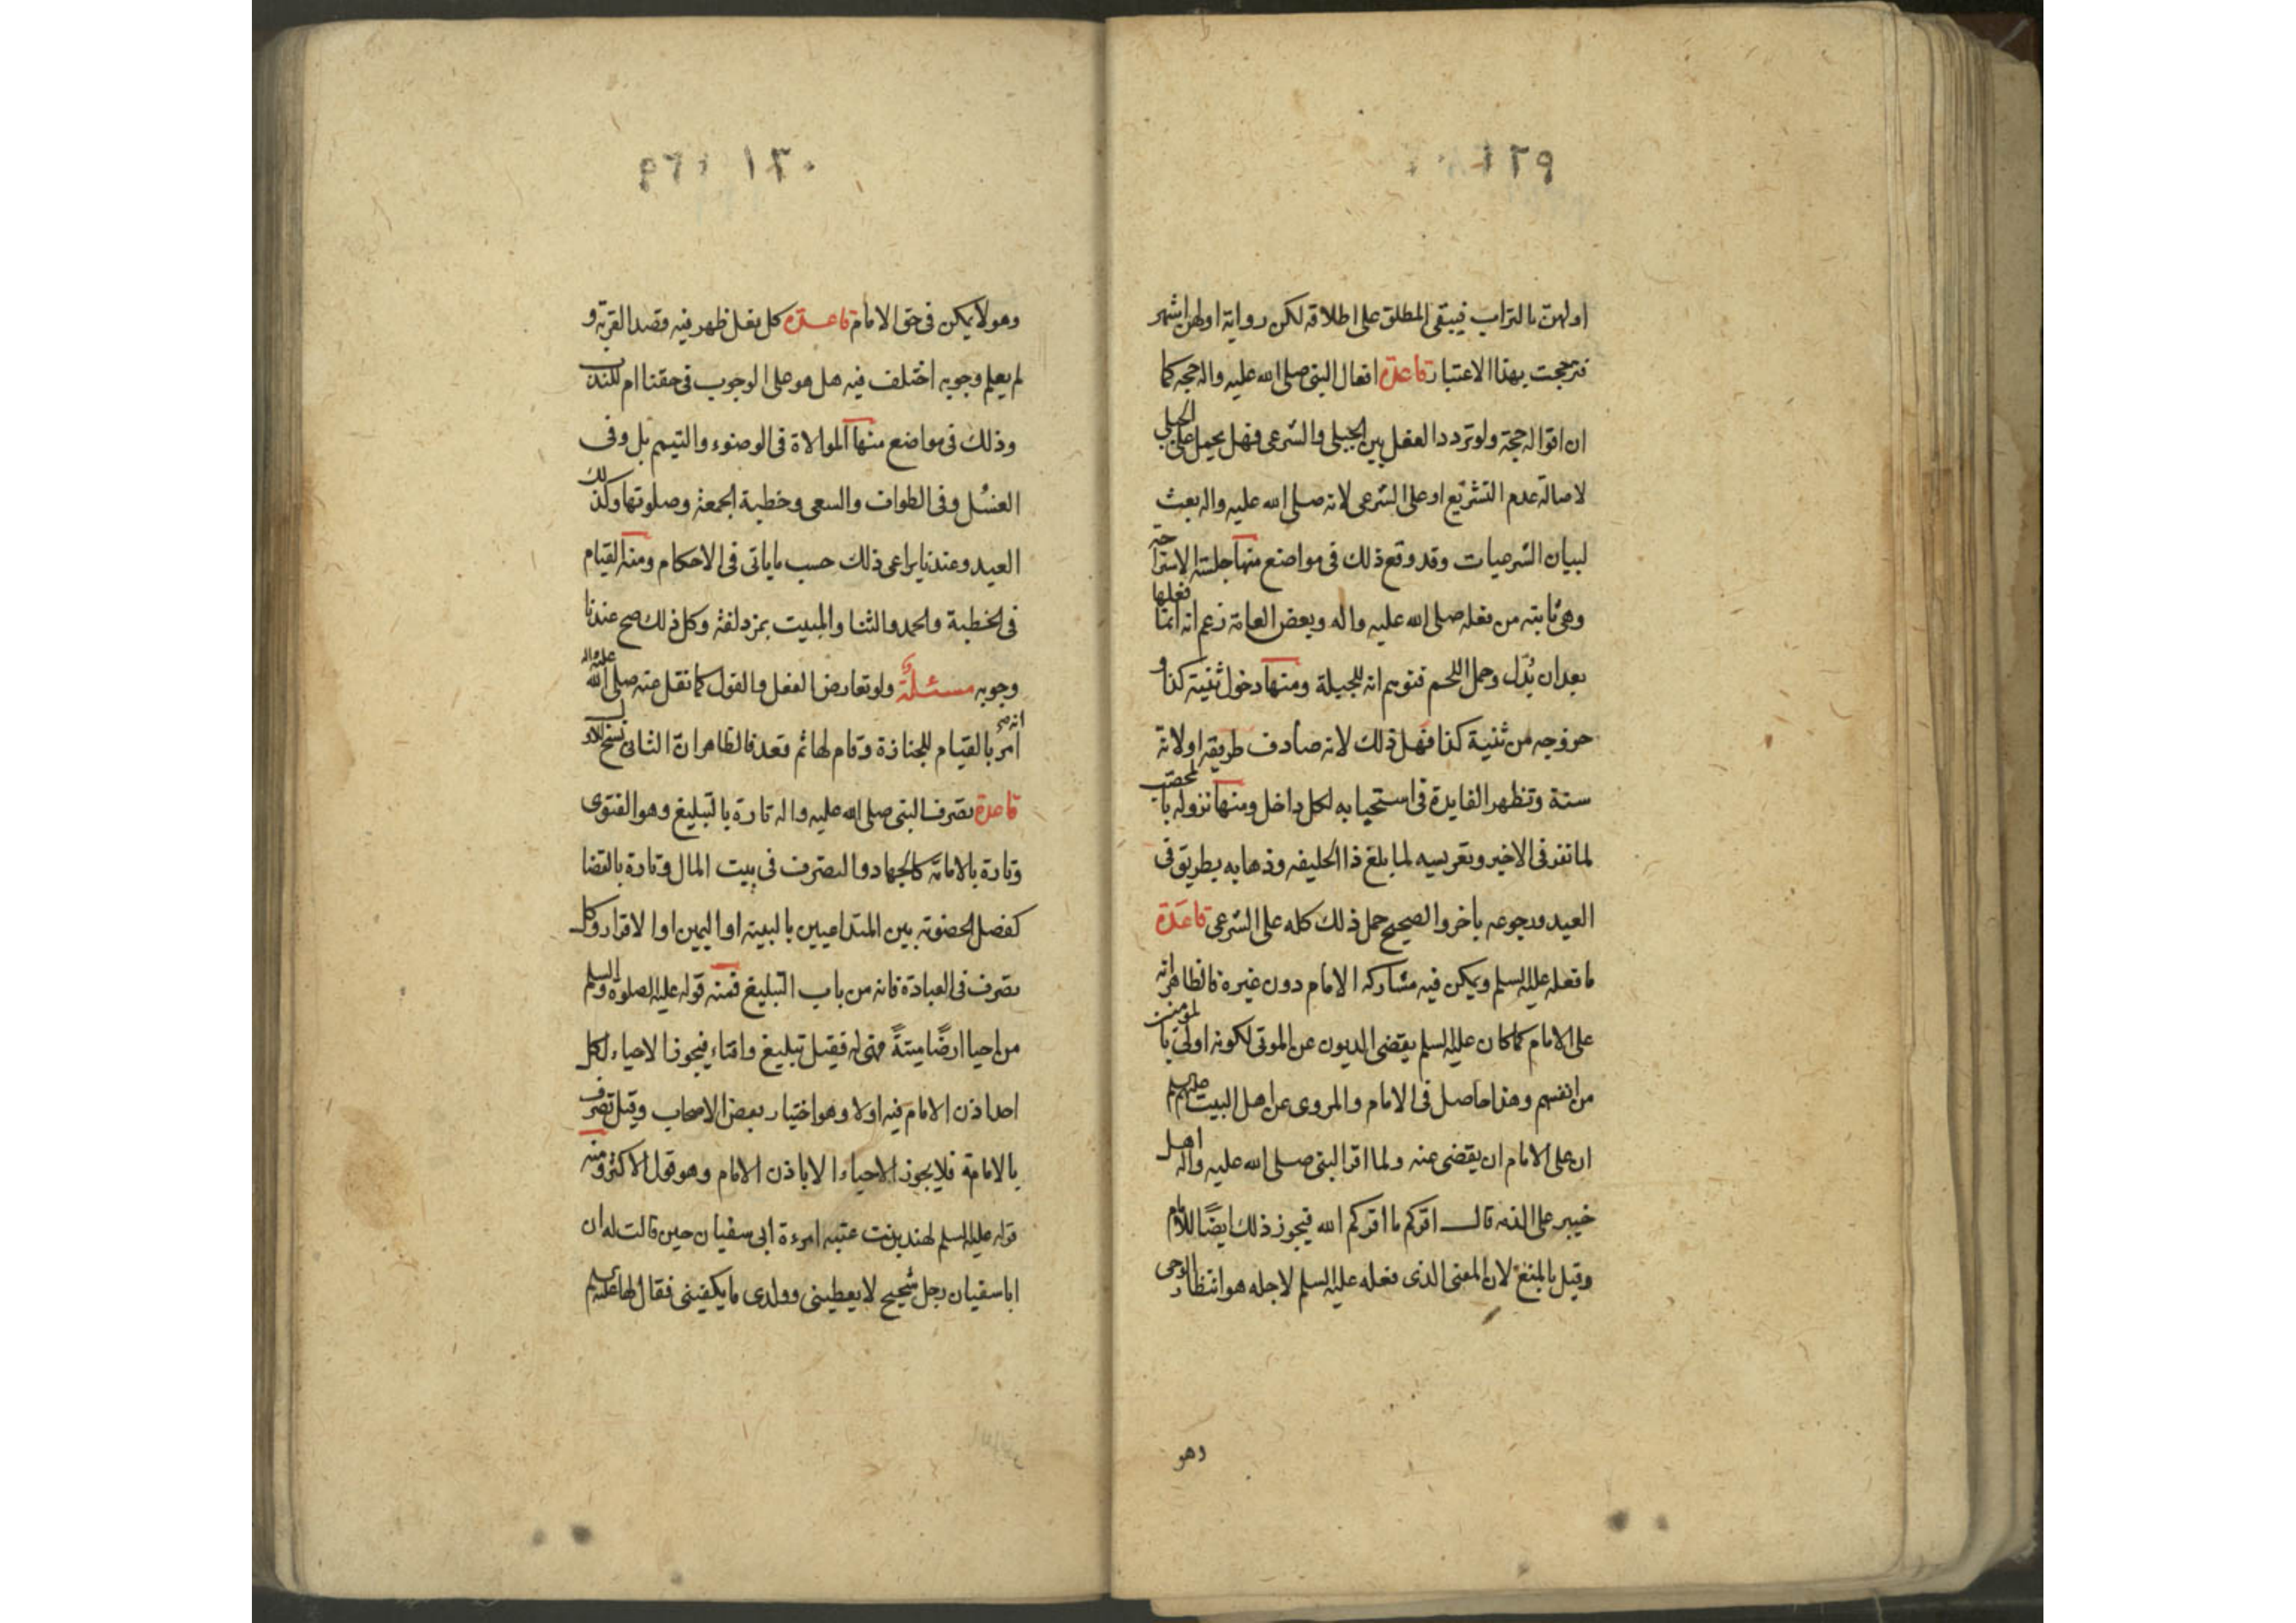 ١٢٩
اولهن بالتراب فيبقى المطلق على اطلاقه لكن رواية اولهن اشهر
فترجحت بهذا الاعتبار قاعدة افعال النبى صلى الله عليه واله حجة كما
ان اقواله حجة ولو تردد الفعل بين الجبلى والشرعى فهل يحمل على الجبلى
لاصالة عدم التشريع او على الشرعى لانه صلى الله عليه واله بعث
لبيان الشرعيات وقد وقع ذلك فى مواضع منها جلسة الاستراحة
وهى ثابته من فعله صلى الله عليه واله وبعض العامة زعم انه انما فعلها
بعد ان بدّل وحمل اللحم فتوهم انه للجبلة ومنها دخول ثنية كذا و
خروجه من ثنية كذا فهل ذلك لانه صادف طريقه او لانه
سنة وتظهر الفايدة فى استحبابه لكل داخل ومنها نزوله بالمحصّب
لما نفر فى الاخير وتعريسه لما بلغ ذا الحليفه وذهابه بطريق فى
العيد ورجوعه باخر والصحيح حمل ذلك كله على الشرعى قاعدة
ما فعله عليه السلم ويمكن فيه مشاركه الامام دون غيره فالظاهر انه
على الامام كما كان عليه السلم يقضى الديون عن الموتى لكونه اولى بالمؤمنين
من انفسهم وهذا حاصل فى الامام والمروى عن اهل البيت عليهم السلم
ان على الامام ان يقضى عنه ولما اقر النبى صلى الله عليه واله اهل
خيبر على الذمه قال اقركم ما اقركم الله فيجوز ذلك ايضًا للامام
وقيل بالمنع لان المعنى الذى فعله عليه السلم لاجله هو انتظار الوحى
وهو
١٣٠
وهو لا يمكن فى حق الامام قاعدة كل فعل ظهر فيه قصد القربة و
لم يعلم وجوبه اختلف فيه هل هو على الوجوب فى حقنا ام للندب
وذلك فى مواضع منها الموالاة فى الوضوء والتيمم بل وفى
الغسل وفى الطواف والسعى وخطبة الجمعة وصلوتها وكذلك
العيد وعندنا يراعى ذلك حسب ما ياتى فى الاحكام ومنه القيام
فى الخطبة والحمد والثنا والمبيت بمزدلفة وكل ذلك صح عندنا
وجوبه مسئلة ولو تعارض الفعل والقول كما نقل عنه صلى الله عليه واله
انه امر بالقيام للجنازة وقام لها ثم قعد فالظاهر انّ الثانى نسخ للاول
قاعدة تصرف النبى صلى الله عليه واله تارة بالتبليغ وهو الفتوى
وتارة بالامامة كالجهاد والتصرف فى بيت المال وتارة بالقضا
كفصل الخصومة بين المتداعيين بالبينه او اليمين او الاقرار وكل
تصرف فى العبادة فانه من باب التبليغ فمنه قوله عليه الصلوة والسلم
من احيا ارضًا ميتةً فهى له فقيل تبليغ وافتاء فيجوز الاحياء لكل
احد اذن الامام فيه او لا وهو اختيار بعض الاصحاب وقيل تصرف
بالامامة فلا يجوز الاحياء الا باذن الامام وهو قول الاكثر ومنه
قوله عليه السلم لهند بنت عتبه امرءة ابى سفيان حين قالت له ان
ابا سفيان رجل شحيح لا يعطينى وولدى ما يكفينى فقال لها عليه السلم